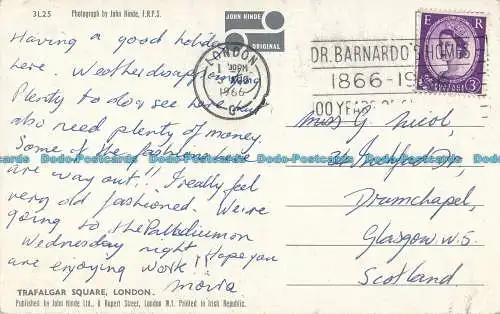 3L25 Photograph by John Hinde, F.R.P.S.
JOHN HINDE
ORIGINAL
Having a good holiday
here. Weather disappointing
Plenty to do & see here but
also need plenty of money.
Some of the fashions here
are way out!! I really feel
very old fashioned. We're
going to the Palladium on
Wednesday night. Hope you
are enjoying work!!
Moira.
TRAFALGAR SQUARE, LONDON.
Published by John Hinde Ltd., 6 Rupert Street, London W.1. Printed in Irish Republic.
LONDON
1966
C
DR. BARNARDO'S HOMES
1866-19
100 YEARS
E R
POSTAGE
3D
Miss Y. Nicol,
Dr,
Drumchapel,
Glasgow W.5.
Scotland
Dodo-Postcards Dodo-Postcards Dodo-Postcards Dodo-Postcards Dodo-Postcards